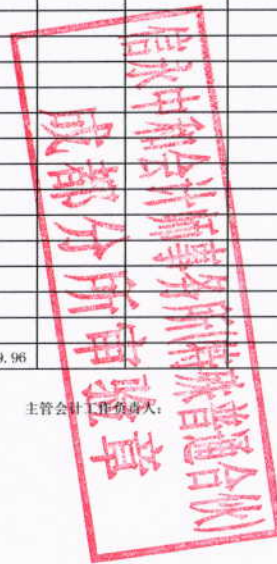 信永中和会计师事务所(特殊普通合伙)
成都分所审验章
9.96
主管会计工作负责人: